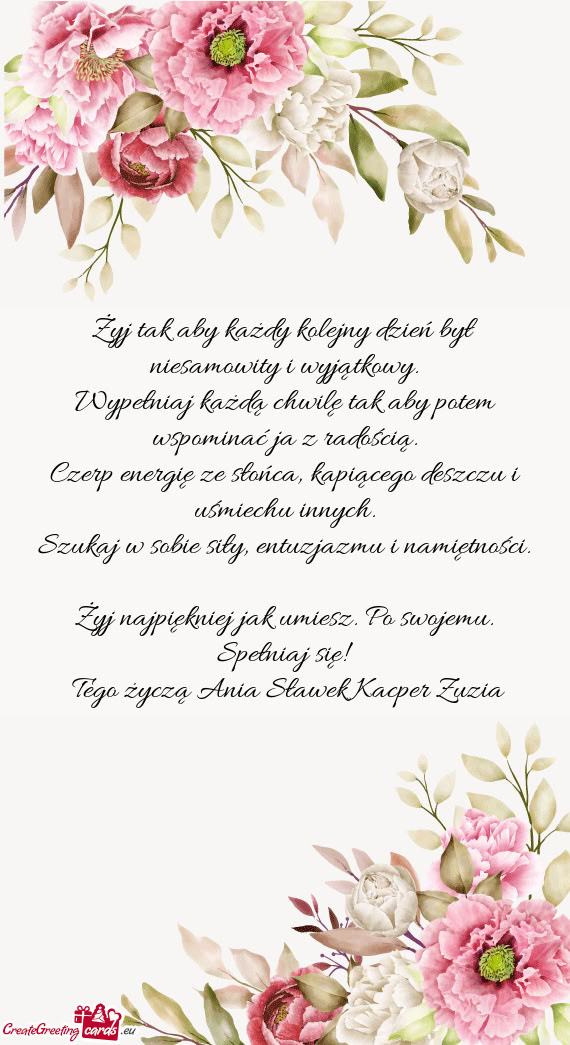 Żyj tak aby każdy kolejny dzień był
niesamowity i wyjątkowy.
Wypełniaj każdą chwilę tak aby potem
wspominać ja z radością.
Czerp energię ze słońca, kapiącego deszczu i
uśmiechu innych.
Szukaj w sobie siły, entuzjazmu i namiętności.
Żyj najpiękniej jak umiesz. Po swojemu.
Spełniaj się!
Tego życzą Ania Sławek Kacper Zuzia
CreateGreeting cards .eu